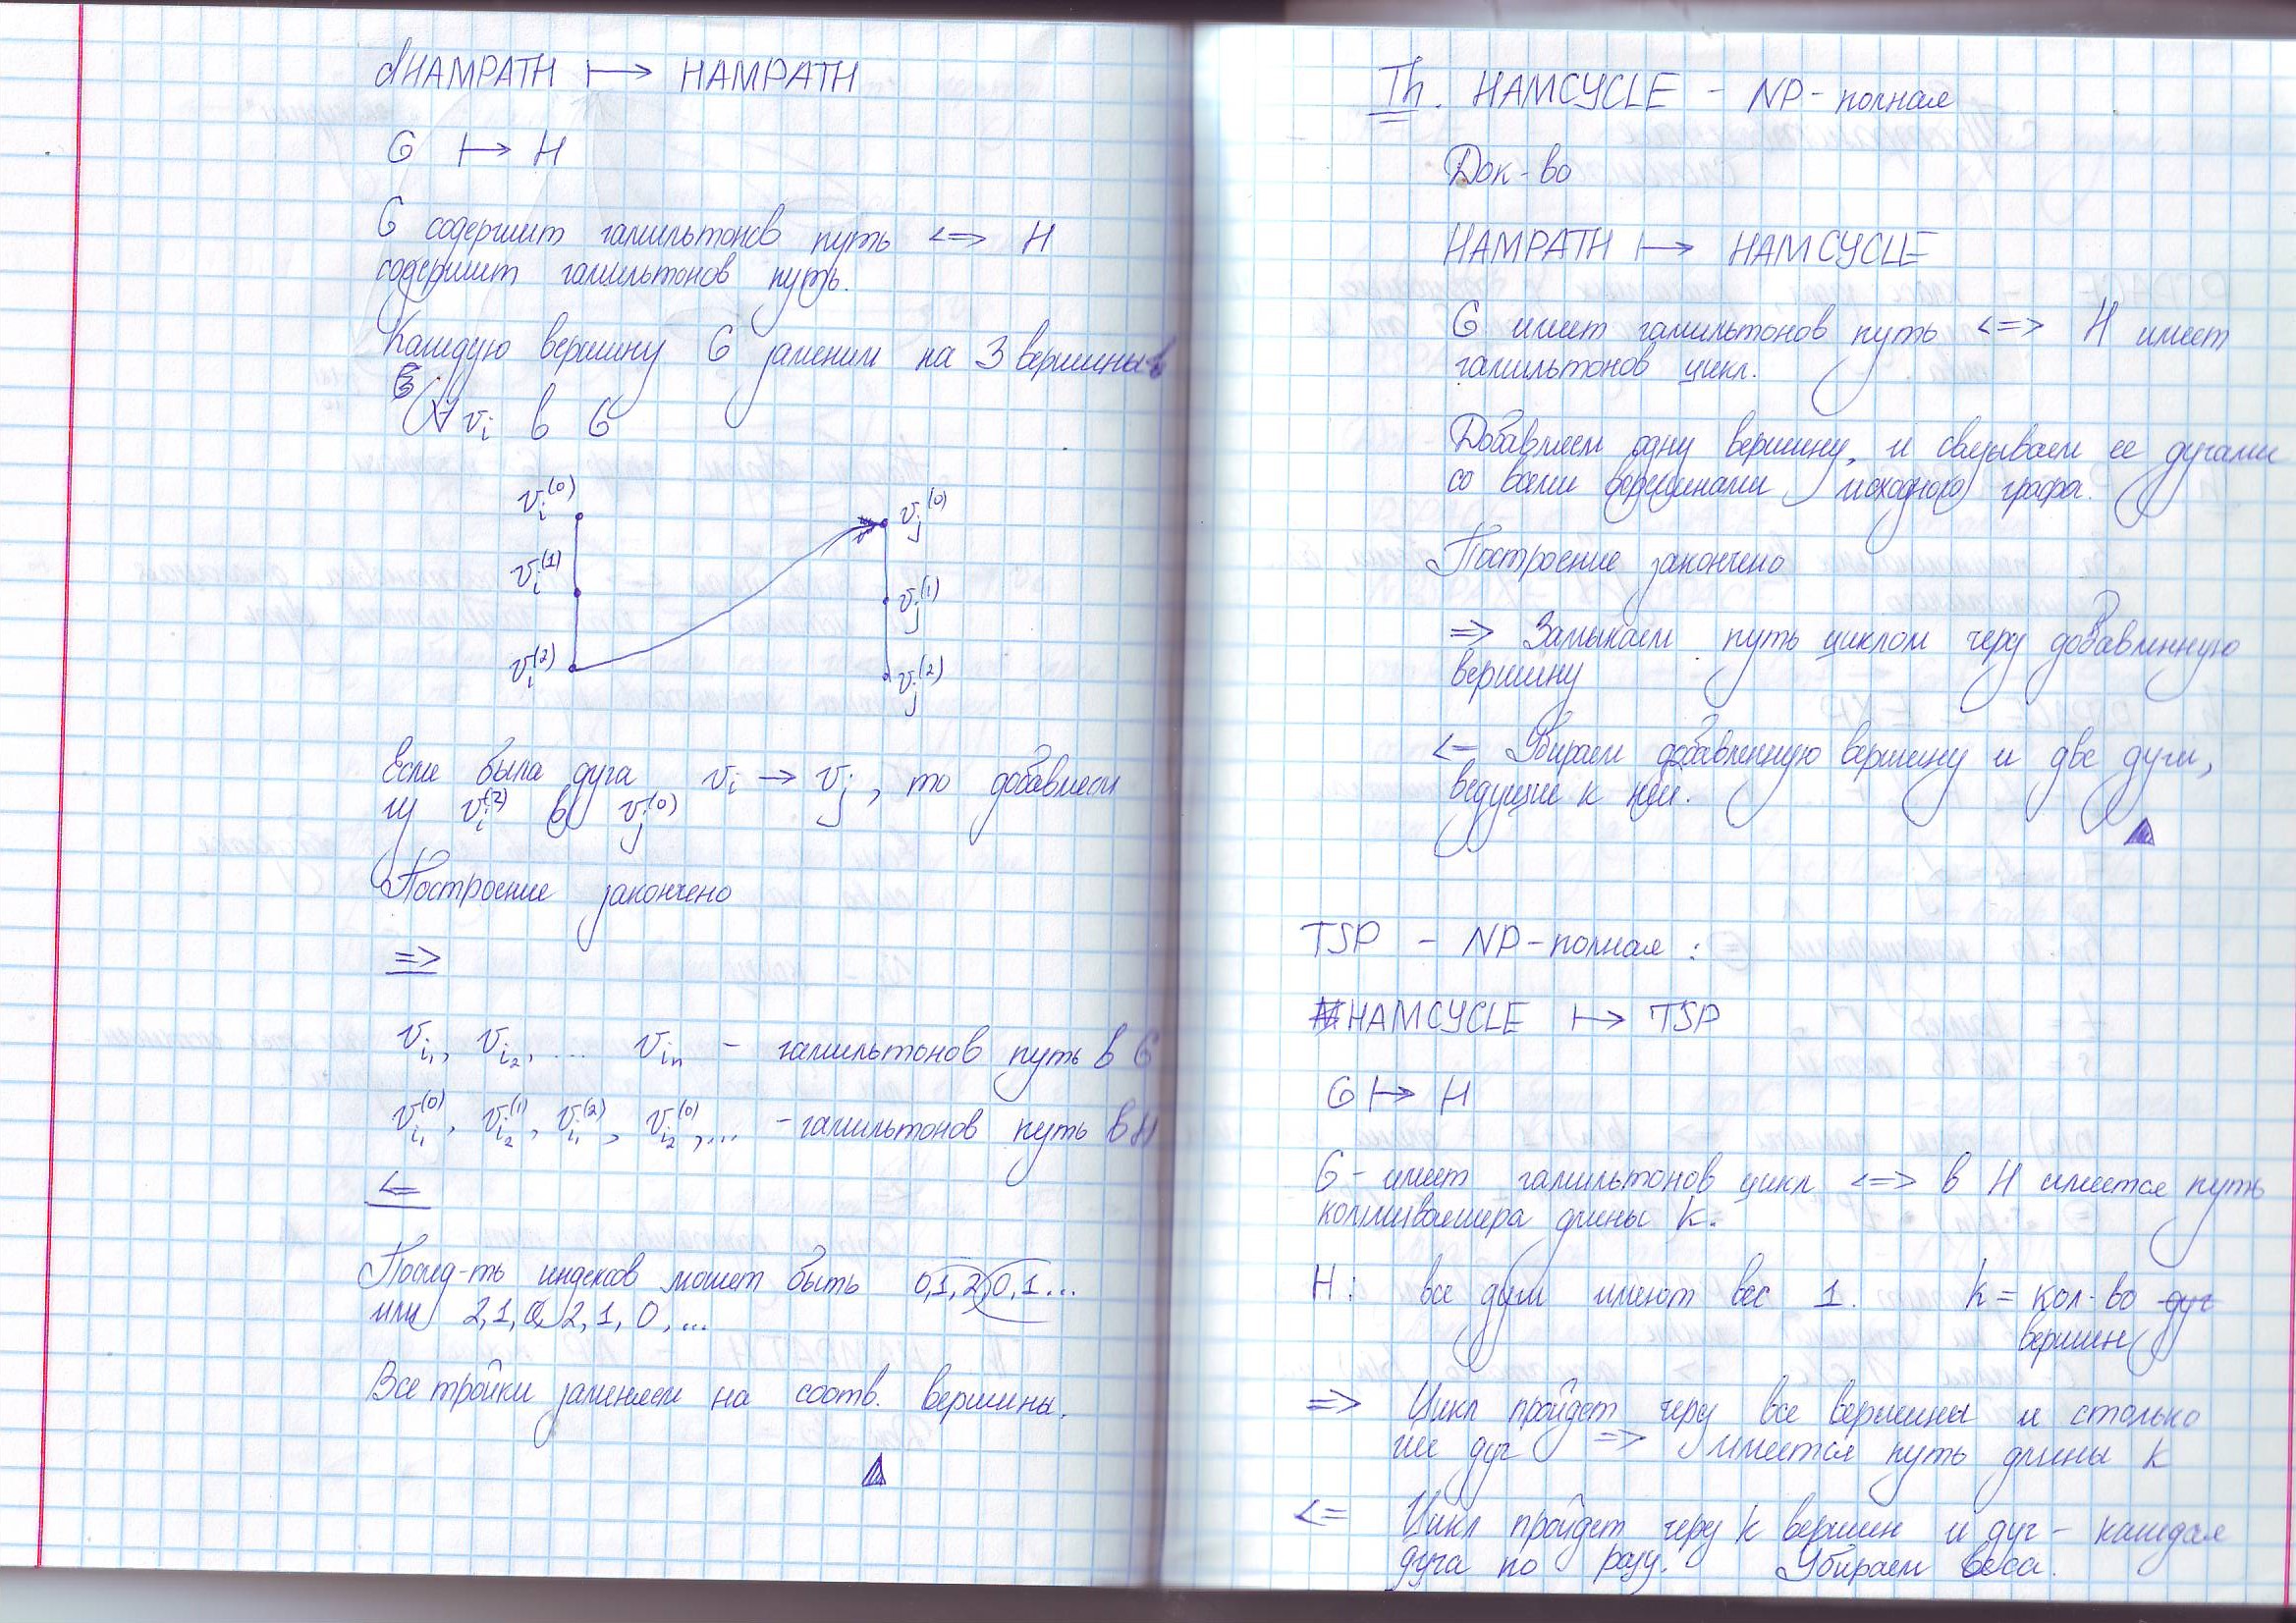 dHAMPATH ↦ HAMPATH
G ↦ H
G содержит гамильтонов путь <=> H
содержит гамильтонов путь.
Каждую вершину G заменим на 3 вершины в
∀ v_i в G
v_i^(0)
v_j^(0)
v_i^(1)
v_j^(1)
v_i^(2)
v_j^(2)
Если была дуга v_i → v_j, то добавляем
из v_i^(2) в v_j^(0)
Построение закончено
=>
v_i₁, v_i₂, ... v_in - гамильтонов путь в G
v_i₁^(0), v_i₂^(1), v_i₁^(2), v_i₂^(0), ... - гамильтонов путь в H
<=
Послед-ть индексов может быть 0,1,2,0,1...
или 2,1,0,2,1,0,...
Все тройки заменяем на соотв. вершины.
Th. HAMCYCLE - NP-полная
Док-во
HAMPATH ↦ HAMCYCLE
G имеет гамильтонов путь <=> H имеет
гамильтонов цикл.
Добавляем одну вершину, и связываем ее дугами
со всеми вершинами исходного графа.
Построение закончено
=> Замыкаем путь циклом через добавленную
вершину
<= Убираем добавленную вершину и две дуги,
ведущие к ней.
TSP - NP-полная:
HAMCYCLE ↦ TSP
G ↦ H
G - имеет гамильтонов цикл <=> в H имеется путь
коммивояжера длины k.
H: все дуги имеют вес 1. k = кол-во дуг
вершин
=> Цикл пройдет через все вершины и столько
же дуг => имеется путь длины k
<= Цикл пройдет через k вершин и дуг - каждая
дуга по разу. Убираем веса.